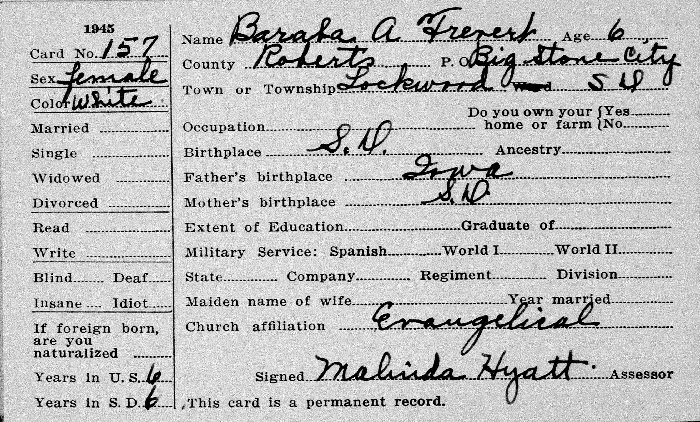 1945
Card No. 157
Sex female
Color White
Married
Single
Widowed
Divorced
Read
Write
Blind Deaf
Insane Idiot
If foreign born,
are you
naturalized
Years in U. S. 6
Years in S. D. 6
Name Baraba A Frevert Age 6
County Roberts P. O. Big Stone City
Town or Township Lockwood S D
Do you own your { Yes
home or farm { No
Occupation
Birthplace S. D. Ancestry
Father's birthplace Iowa
Mother's birthplace S. D.
Extent of Education Graduate of
Military Service: Spanish World I World II
State Company Regiment Division
Maiden name of wife Year married
Church affiliation Evangelical
Signed Malinda Hyatt Assessor
This card is a permanent record.